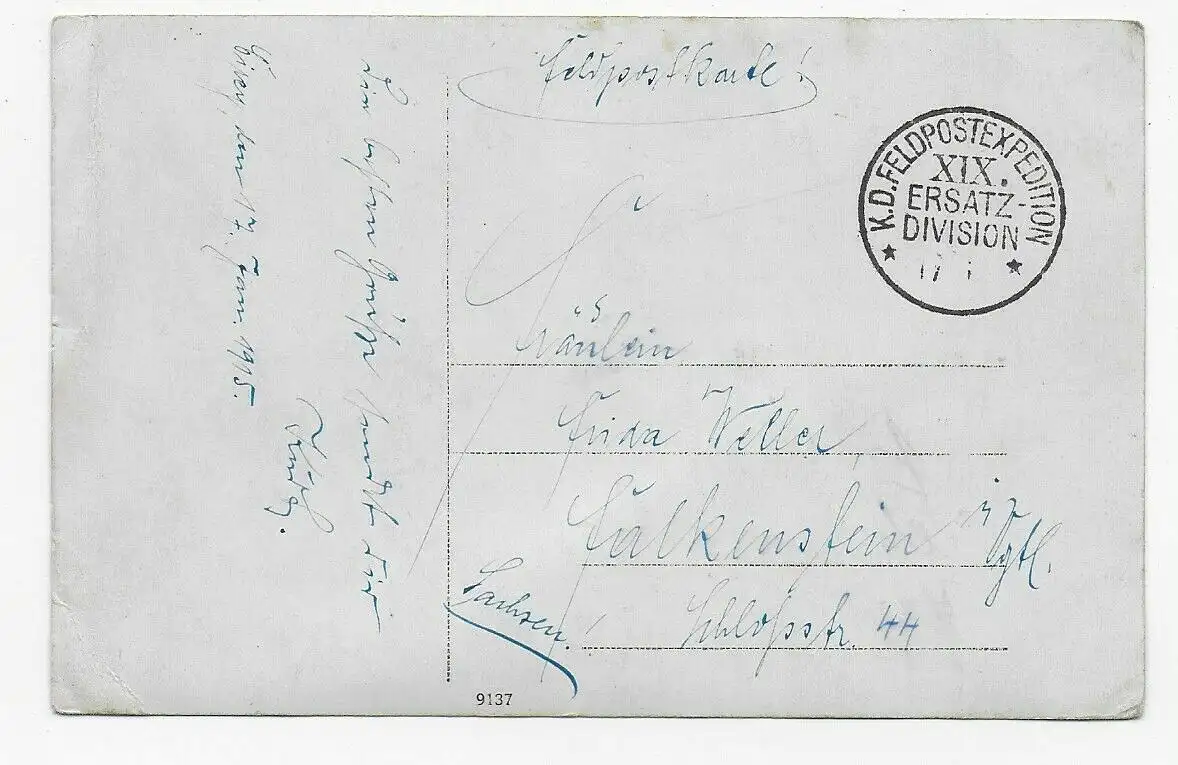 Feldpostkarte!
K.D. FELDPOSTEXPEDITION
XIX.
ERSATZ-
DIVISION
17 1
Fräulein
Frida Weller,
Falkenstein i. Vgtl.
Schloßstr. 44
Sachsen.
9137
den 17. Jan. 1915.
Die besten Grüße sendet Dir